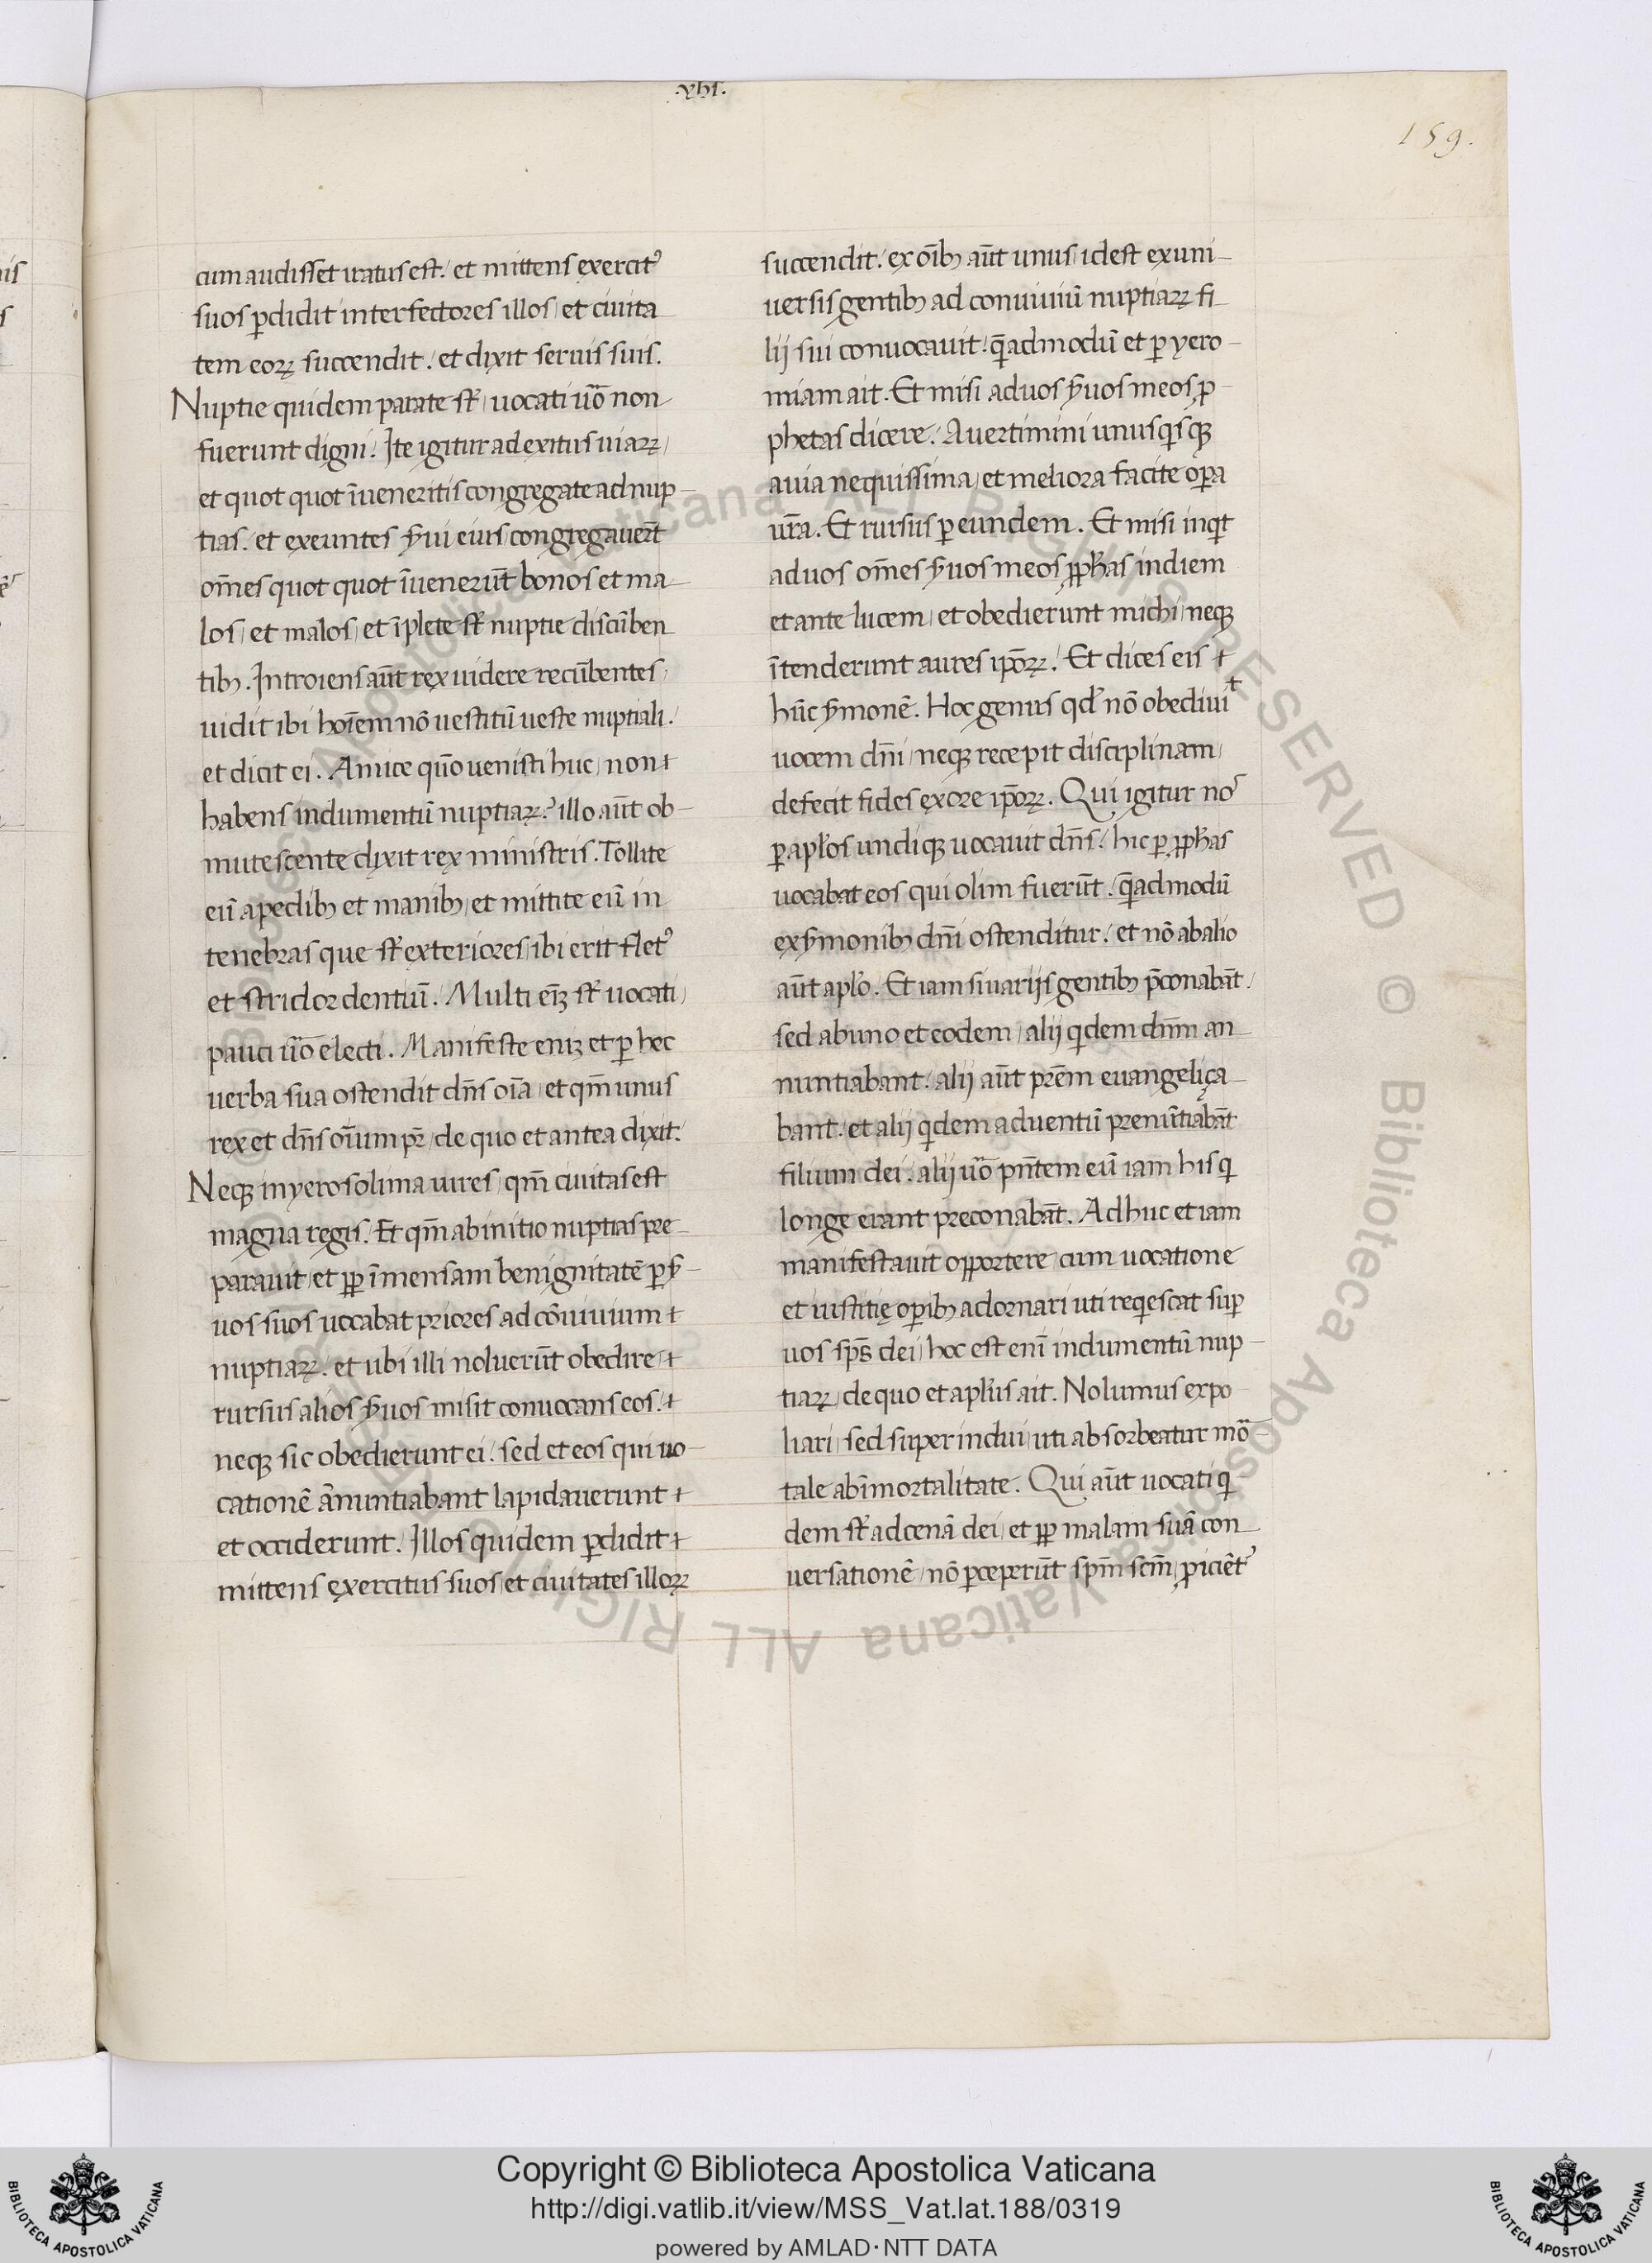 .xhi.
159.
cum audisset iratus est. et mittens exercitꝰ
suos ꝑdidit interfectores illos, et ciuita
tem eoꝝ succendit. et dixit seruis suis.
Nuptie quidem parate st̄, uocati uo̅ non
fuerunt digni. Ite igitur ad exitus uiaꝝ,
et quot quot īueneritis congregate ad nup-
tias. et exeuntes s̄ui eius congregauer̄t
om̅es quot quot īuener̄ut bonos et ma-
los, et malos, et īplete st̄ nuptie discūben
tibꝫ. Introiens aūt rex uidere recūbentes,
uidit ibi hoīem nō uestitū ueste nuptiali.
et dicit ei. Amice quō uenisti huc, non
habens indumentū nuptiaꝝ? illo aūt ob-
mutescente dixit rex ministris. Tollite
eū a pedibꝫ et manibꝫ, et mittite eū in
tenebras que st̄ exteriores, ibi erit fletꝰ
et stridor dentiū. Multi eīꝫ st̄ uocati,
pauci uō electi. Manifeste eniꝫ et ꝑ hec
uerba sua ostendit dn̅s oīa, et qm̅ unus
rex et dn̅s oīum pr̄, de quo et antea dixit.
Neqꝫ in yerosolima iures, qm̅ ciuitas est
magna regis. Et qm̅ ab initio nuptias pre-
parauit, et ꝓp īmensam benignitatē ꝑ s̄-
uos suos uocabat priores ad cōuiuium
nuptiaꝝ. et ubi illi noluer̄ut obedire,
rursus alios s̄uos misit conuocans eos.
neqꝫ sic obedierunt ei. sed et eos qui uo-
cationē ānuntiabant lapidauerunt
et occiderunt. Illos quidem ꝑdidit
mittens exercitus suos, et ciuitates illoꝝ
succendit. ex oībꝫ aūt unus, id est ex uni-
uersis gentibꝫ ad conuiuiū nuptiaꝝ fi
lij sui conuocauit. q̄admodū et ꝑ yero-
miam ait. Et misi ad uos s̄uos meos ꝓ-
phetas dicere. Auertimini unusq̄sqꝫ
a uia nequissima, et meliora facite oꝑa
ur̄a. Et rursus ꝑ eundem. Et misi inq̄t
ad uos om̅es s̄uos meos ꝓph̄as in diem
et ante lucem, et obedierunt michi, neqꝫ
ītenderunt aures ip̄oꝝ. Et dices eis
hūc s̄monē. Hoc genus qd̄ nō obediuit
uocem dn̅i, neqꝫ recepit disciplinam,
defecit fides ex ore ip̄oꝝ. Qui igitur nos
ꝑ apl̄os undiqꝫ uocauit dn̅s. hic ꝑ ꝓph̄as
uocabat eos qui olim fuer̄ut. q̄admodū
ex s̄monibꝫ dn̅i ostenditur. et nō ab alio
aūt apl̄o. Et iam si uarijs gentibꝫ p̄conabāt.
sed ab uno et eodem, alij q̄dem dn̅m an
nuntiabant. alij aūt pr̄em euangeliça
bant. et alij q̄dem aduentū prenūtiabāt
filium dei. alij uō pn̄tem eū iam his q̄
longe erant preconabāt. Adhuc et iam
manifestauit opportere cum uocatione
et iustitię oꝑibꝫ adornari uti req̄escat suꝑ
uos sp̄s dei, hoc est enī indumentū nup-
tiaꝝ, de quo et apl̄us ait. Nolumus expo
liari, sed super indui, uti absorbeatur mō
tale ab īmortalitate. Qui aūt uocati q̄
dem st̄ ad cenā dei, et ꝓp malam suā con
uersationē, nō ꝑceper̄ut sp̄m scm̄, ꝓiciētꝰ
Copyright © Biblioteca Apostolica Vaticana
http://digi.vatlib.it/view/MSS_Vat.lat.188/0319
powered by AMLAD·NTT DATA